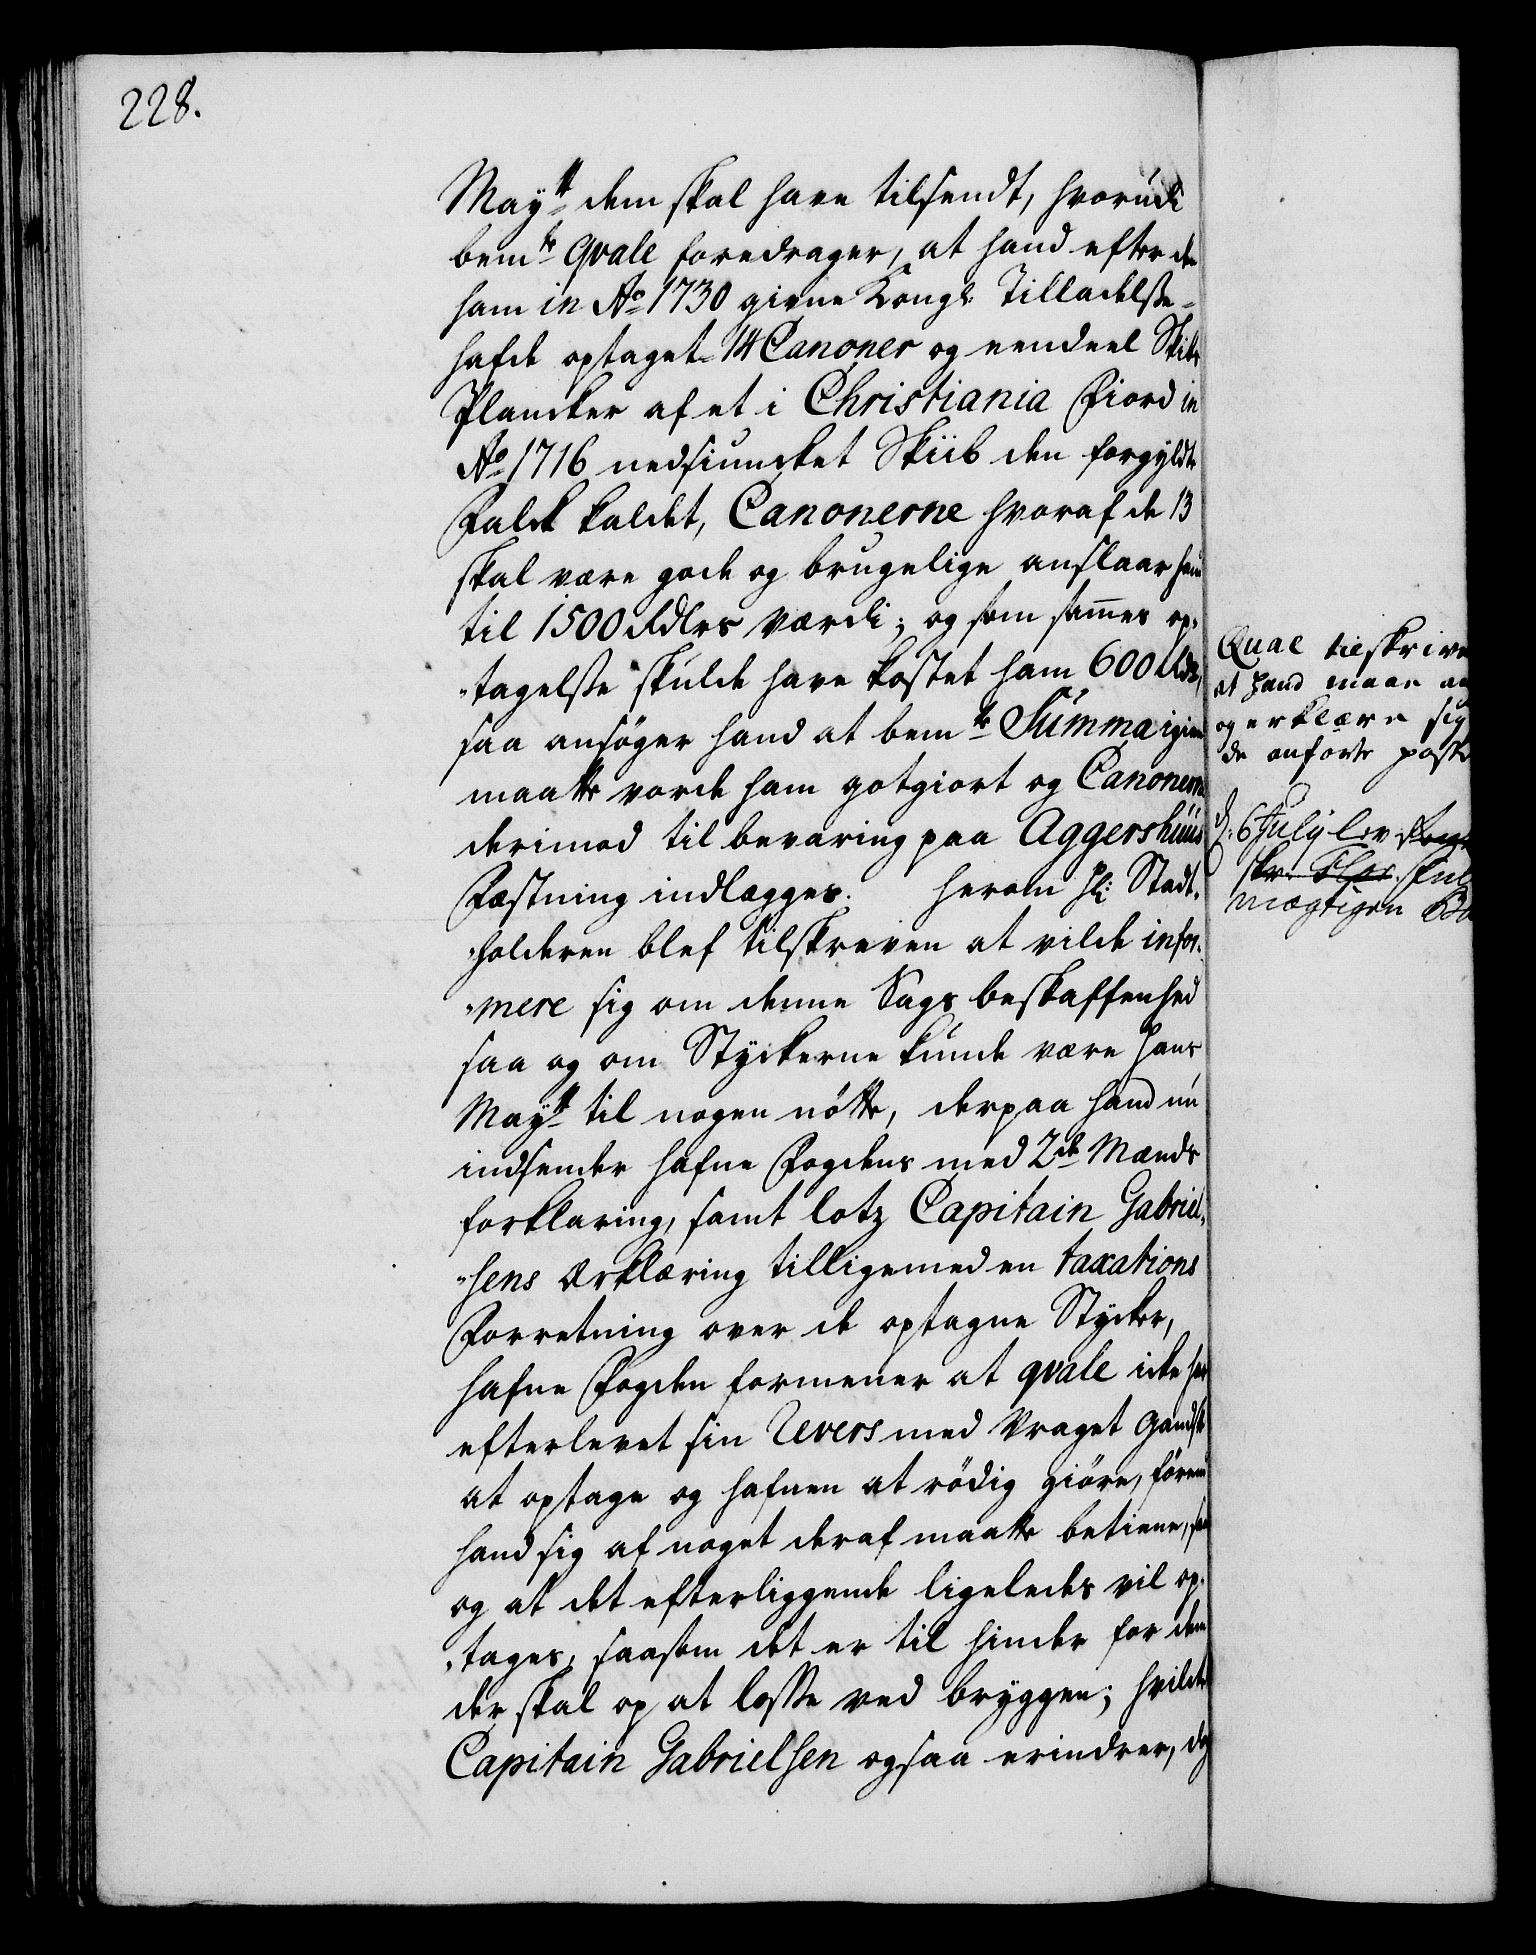 228.
May:tt dem skal have tilsendt, hvorudi
bem:te Qvale foredrager, at hand efter den
ham in Ao 1730 givne Kongl: Tilladelsse
hafde optaget 14 Canoner og eendeel Skibs
Plancker af et i Christiania Fiord in
Ao 1716 nedsiuncket Skiib den forgyldte
Falck kaldet, Canonerne hvoraf de 13
skal være gode og brugelige anslaar hand
til 1500 Rdlrs værdi; og som sammes op-
tagelsse skulde have kostet ham 600 Rdr,
saa ansøger hand at bem:te Summa igien
maatte vorde ham gotgiort og Canonerne
derimod til bevaring paa Aggershuus
Fæstning indlægges. Herom H: Stadt-
holderen blef tilskreven at vilde infor-
mere sig om denne Sags beskaffenhed
saa og om Styckerne kunde være Hans
May:tt til nogen nøtte, derpaa hand nu
indsender Hafne Fogdens med 2de Mænds
forklaring, samt lotz Capitain Gabriel-
sens Erklæring tilligemed en taxations
Forretning over de optagne Stycker,
Hafne Fogden formener at qvale icke har
efterlevet sin Revers med Vraget gandske
at optage og hafnen at rødig giøre, førend
hand sig af noget deraf maatte betiene, saa
og at det efterliggende ligeledes vil op-
tages, saasom det er til hinder for dem
der skal op at losse ved bryggen; hvilcket
Capitain Gabrielsen ogsaa erindrer, dog
Qvale tilskrives
at Hand maae
og erklære sig
de anførte poster
d. 6 July lev.
skr. Fuld
mægtigen